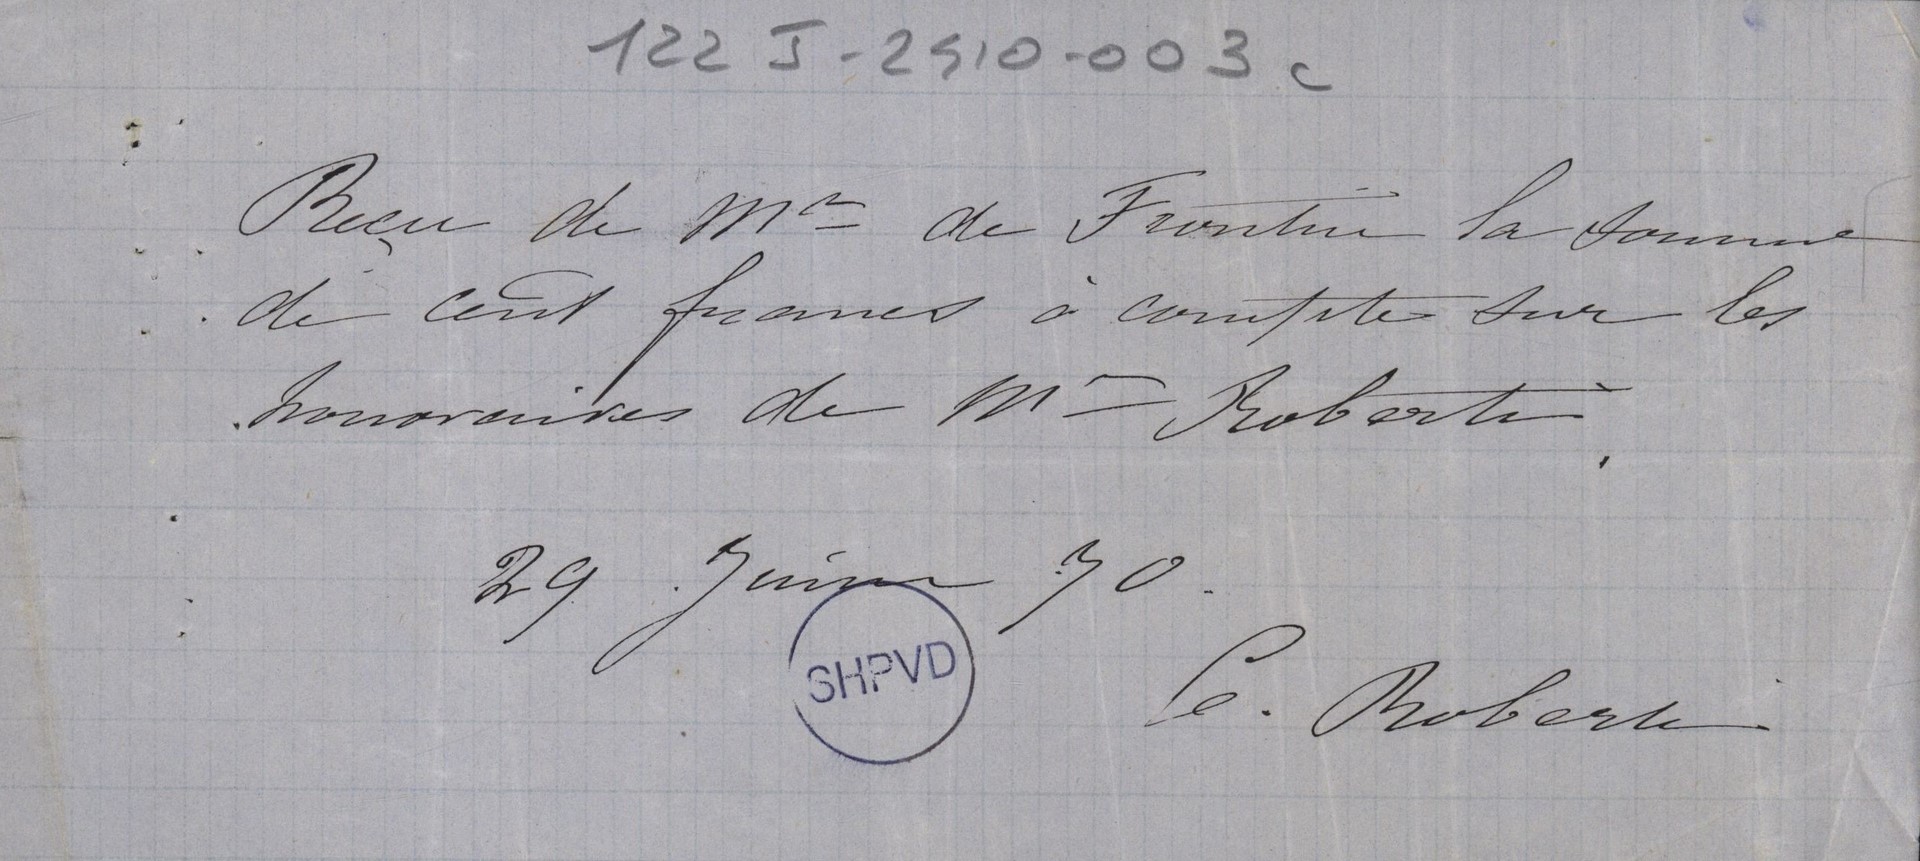 122 J-2910-003 c
Reçu de Mr de Frontin la somme
de cent francs à compte sur les
honoraires de Mr Roberti.
29 Juin 70.
SHPVD
C. Roberti